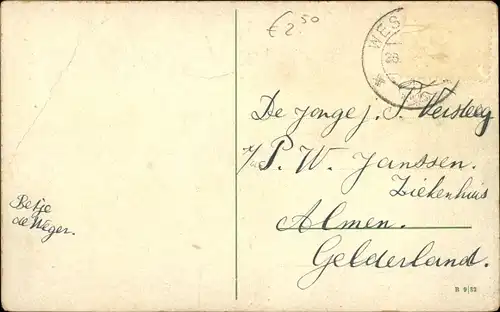 € 2 50
WES
De jonge j. P. Versteeg
P. W. Janssen.
Ziekenhuis
Almen.
Gelderland.
Betje
de Weger.
R 9/52